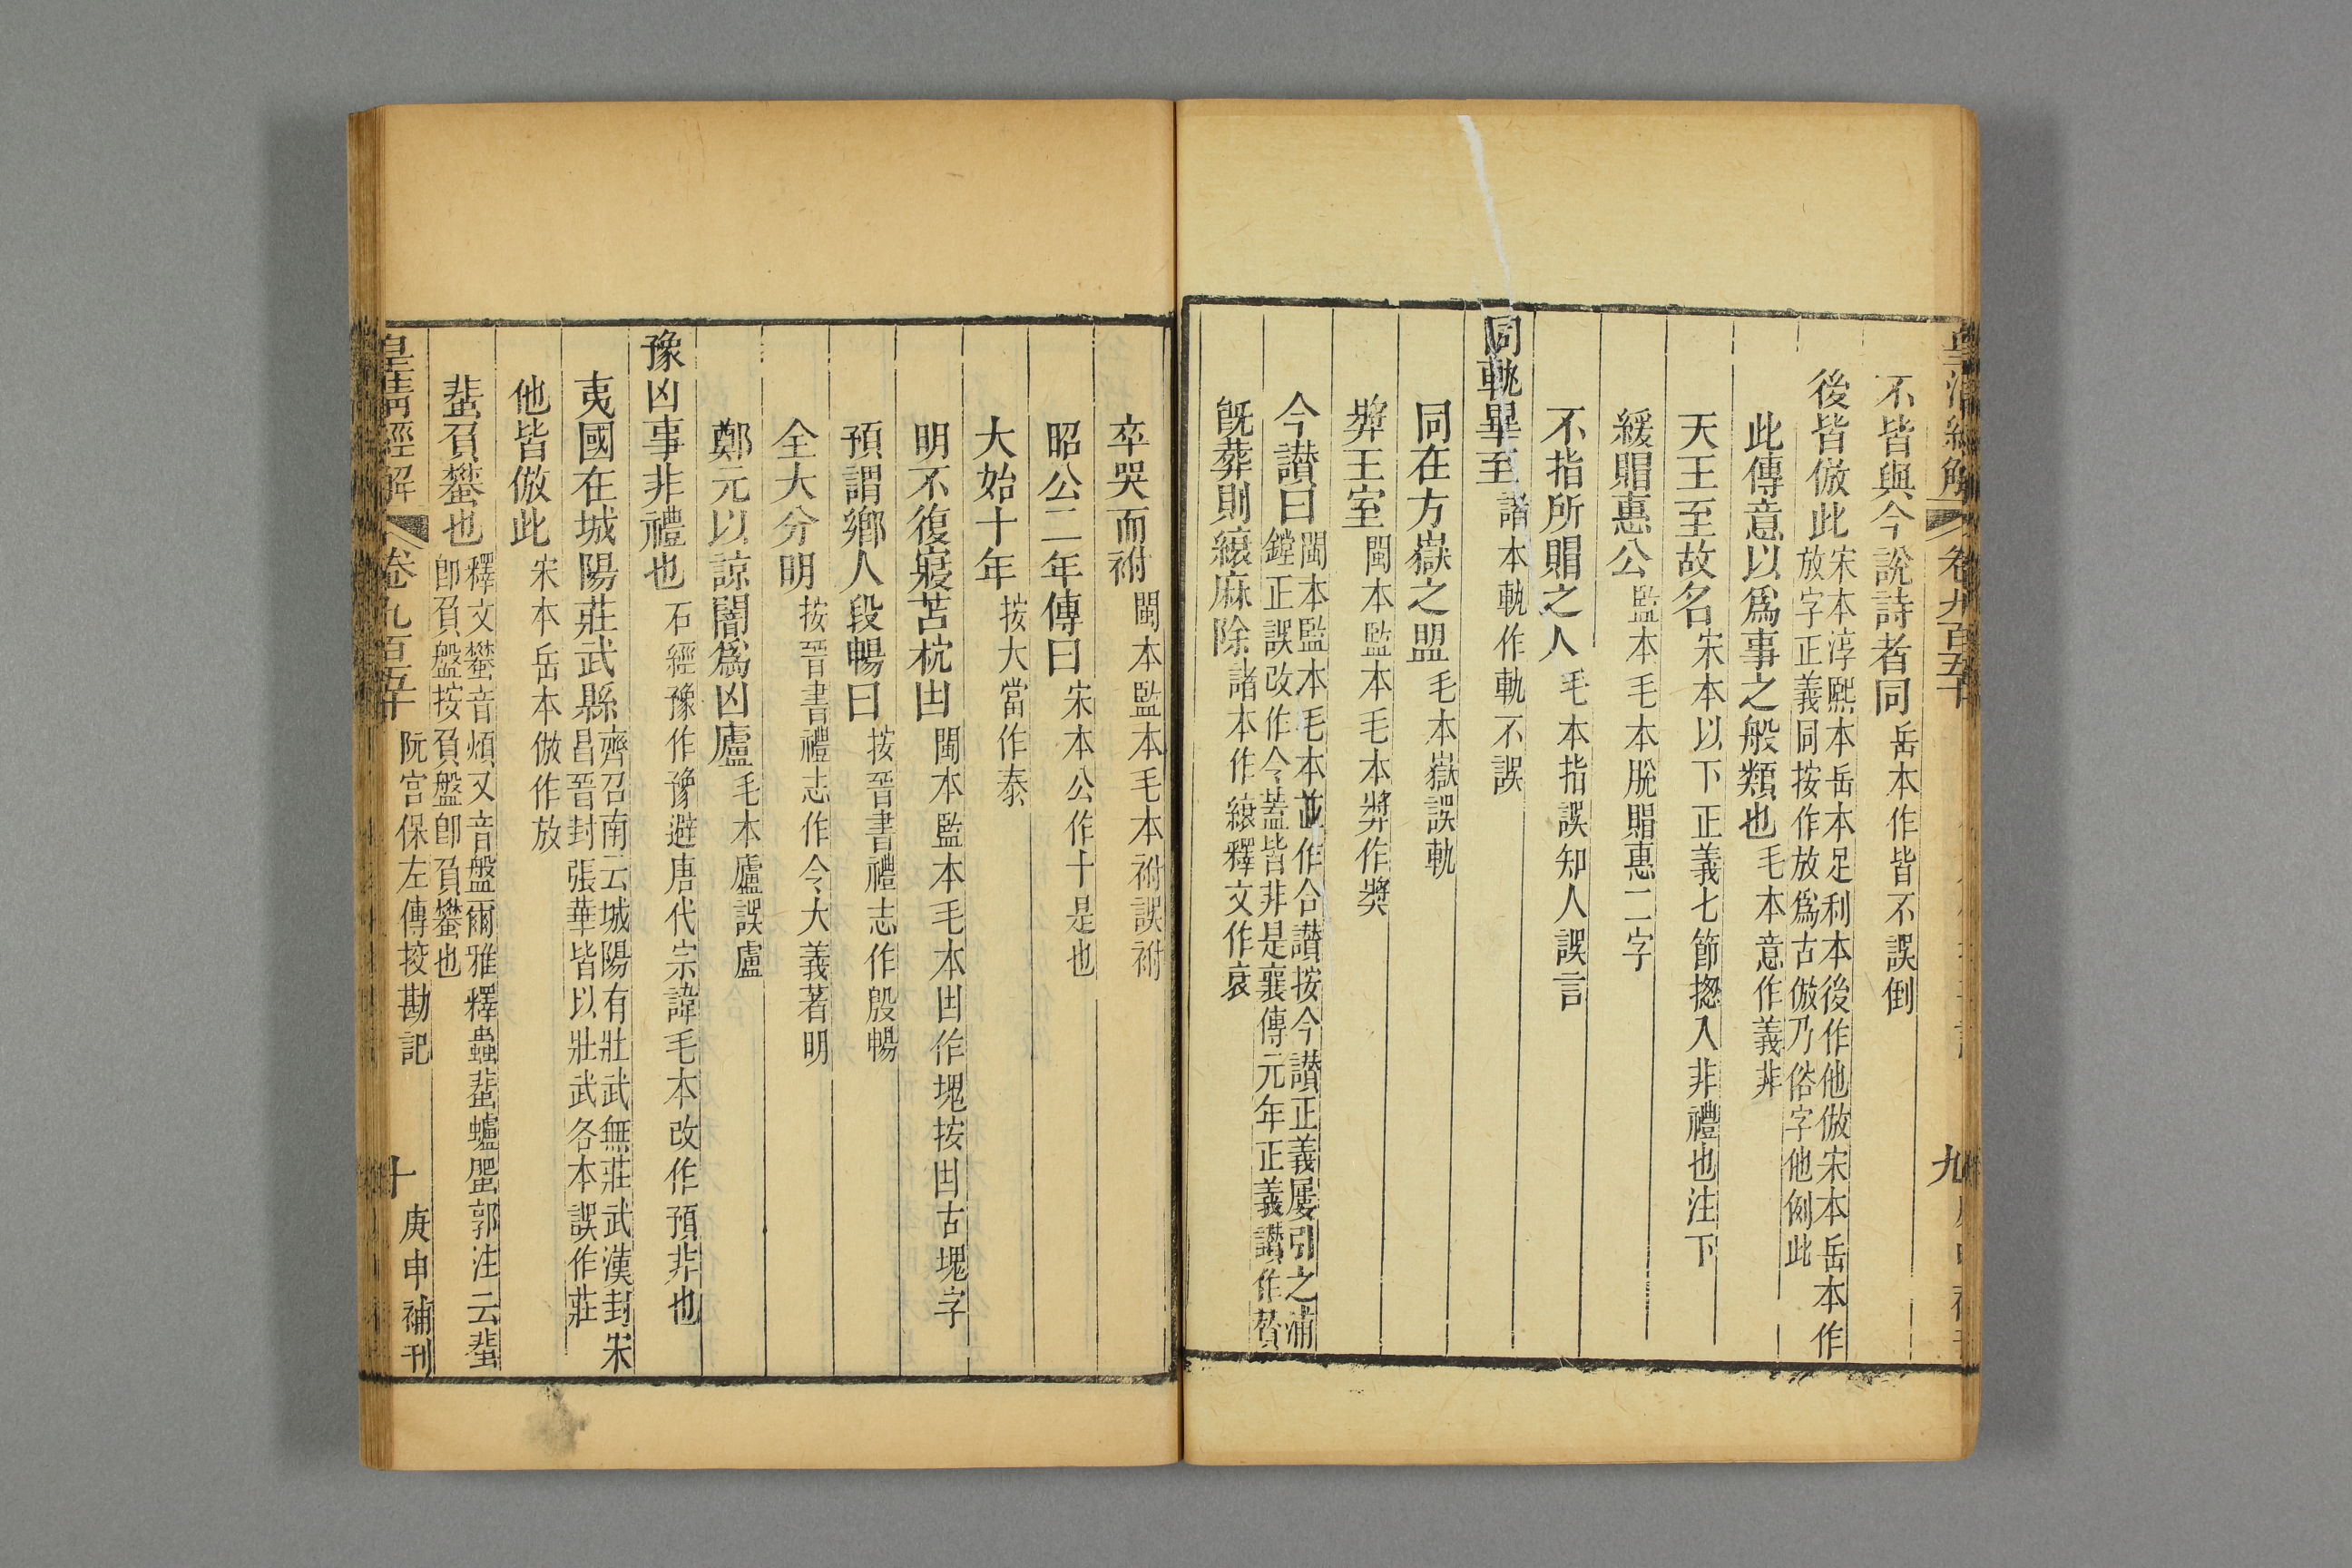 皇清經解
卷九百五十
九
不皆與今說詩者同岳本作皆不誤倒
後皆倣此宋本淳熙本岳本足利本後作他倣宋本岳本作
放字正義同按作放爲古倣乃俗字他例此
此傳意以爲事之般類也毛本意作義非
天王至故名宋本以下正義七節揔入非禮也注下
緩賵惠公監本毛本脫賵惠二字
不指所賵之人毛本指誤知人誤言
同軌畢至諸本軌作軌不誤
同在方嶽之盟毛本嶽誤軌
奬王室閩本監本毛本奬作獎
今讃曰閩本監本毛本並作合讃按今讃正義屢引之浦
鏜正誤改作令蓋皆非是襄傳元年正義讃作贊
旣葬則縗麻除諸本作縗釋文作衰
卒哭而祔閩本監本毛本祔誤袝
昭公二年傳曰宋本公作十是也
大始十年按大當作泰
明不復寢苫枕凷閩本監本毛本凷作塊按凷古塊字
預謂鄉人段暢曰按晉書禮志作殷暢
全大分明按晉書禮志作令大義著明
鄭元以諒闇爲凶廬毛本廬誤盧
豫凶事非禮也石經豫作豫避唐代宗諱毛本改作預非也
夷國在城陽莊武縣齊召南云城陽有壯武無莊武漢封宋
昌晉封張華皆以壯武各本誤作莊
他皆倣此宋本岳本倣作放
蜚負蠜也釋文蠜音煩又音盤爾雅釋蟲蜚蠦蜰郭注云蜚
卽負盤按負盤卽負蠜也
皇清經解
卷九百五十
阮宮保左傳挍勘記
十
庚申補刊